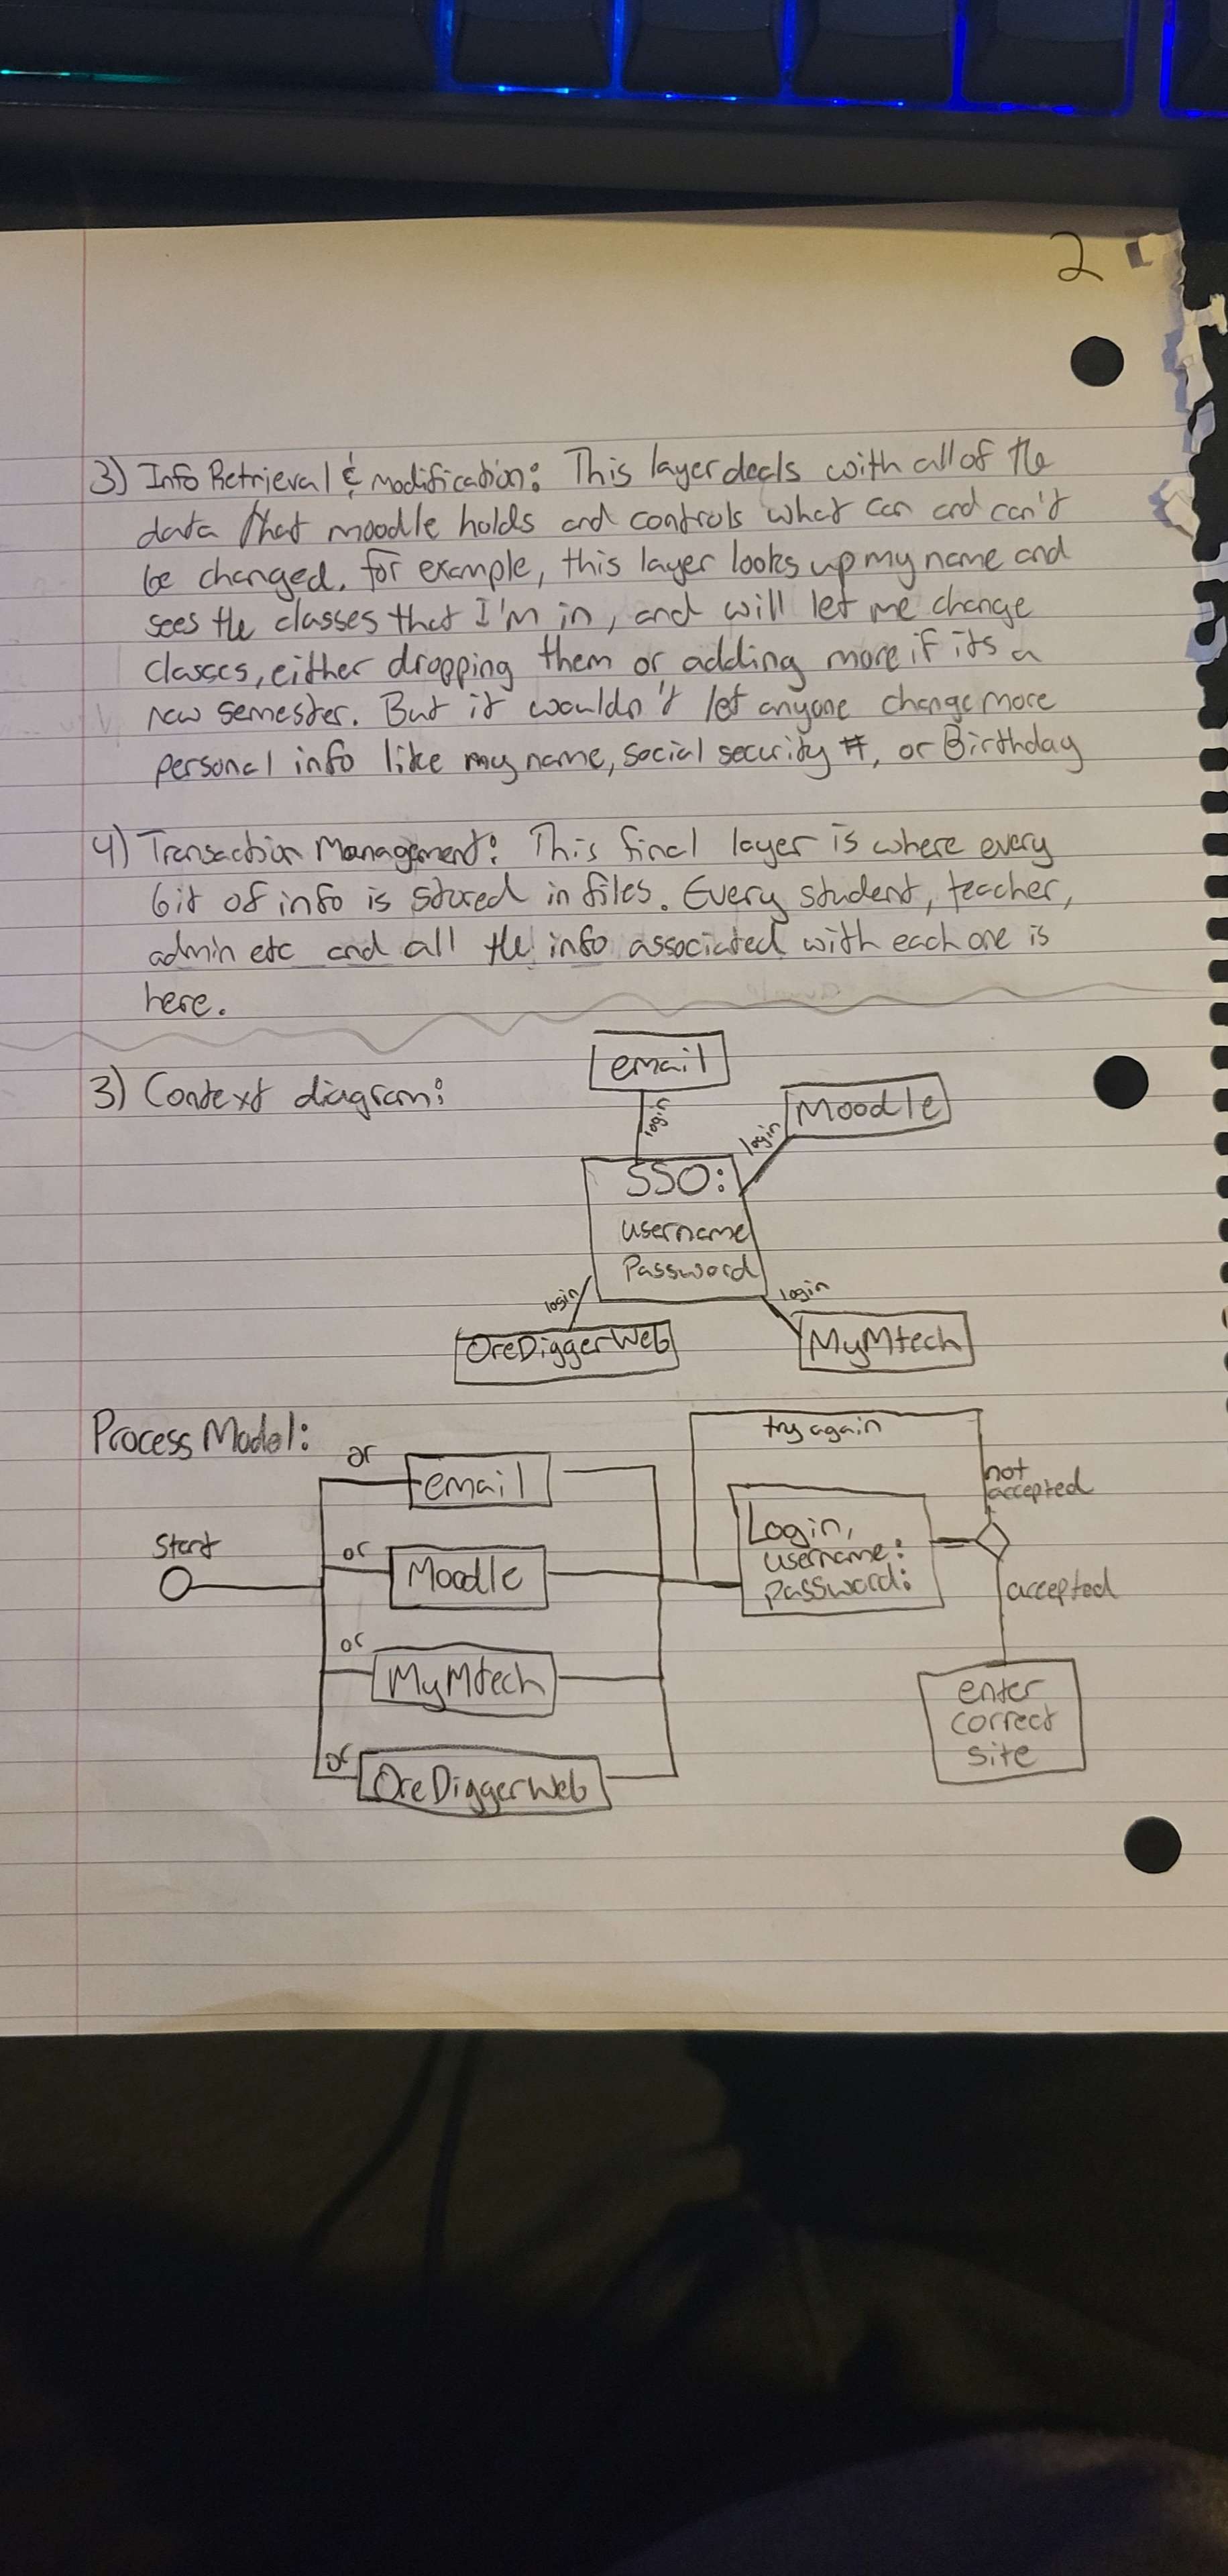 2
3) Info Retrieval & modification: This layer deals with all of the
data that moodle holds and controls what can and can't
be changed. for example, this layer looks up my name and
sees the classes that I'm in, and will let me change
classes, either dropping them or adding more if its a
new semester. But it wouldn't let anyone change more
personal info like my name, social security #, or Birthday
4) Transaction Management: This final layer is where every
bit of info is stored in files. Every student, teacher,
admin etc and all the info associated with each one is
here.
3) Context diagram:
email
login
Moodle
login
SSO:
username
Password
login
login
OreDiggerWeb
MyMtech
Process Model:
try again
or
email
not
accepted
Start
or
Moodle
Login,
username:
password:
accepted
or
MyMtech
enter
correct
site
or
OreDiggerWeb